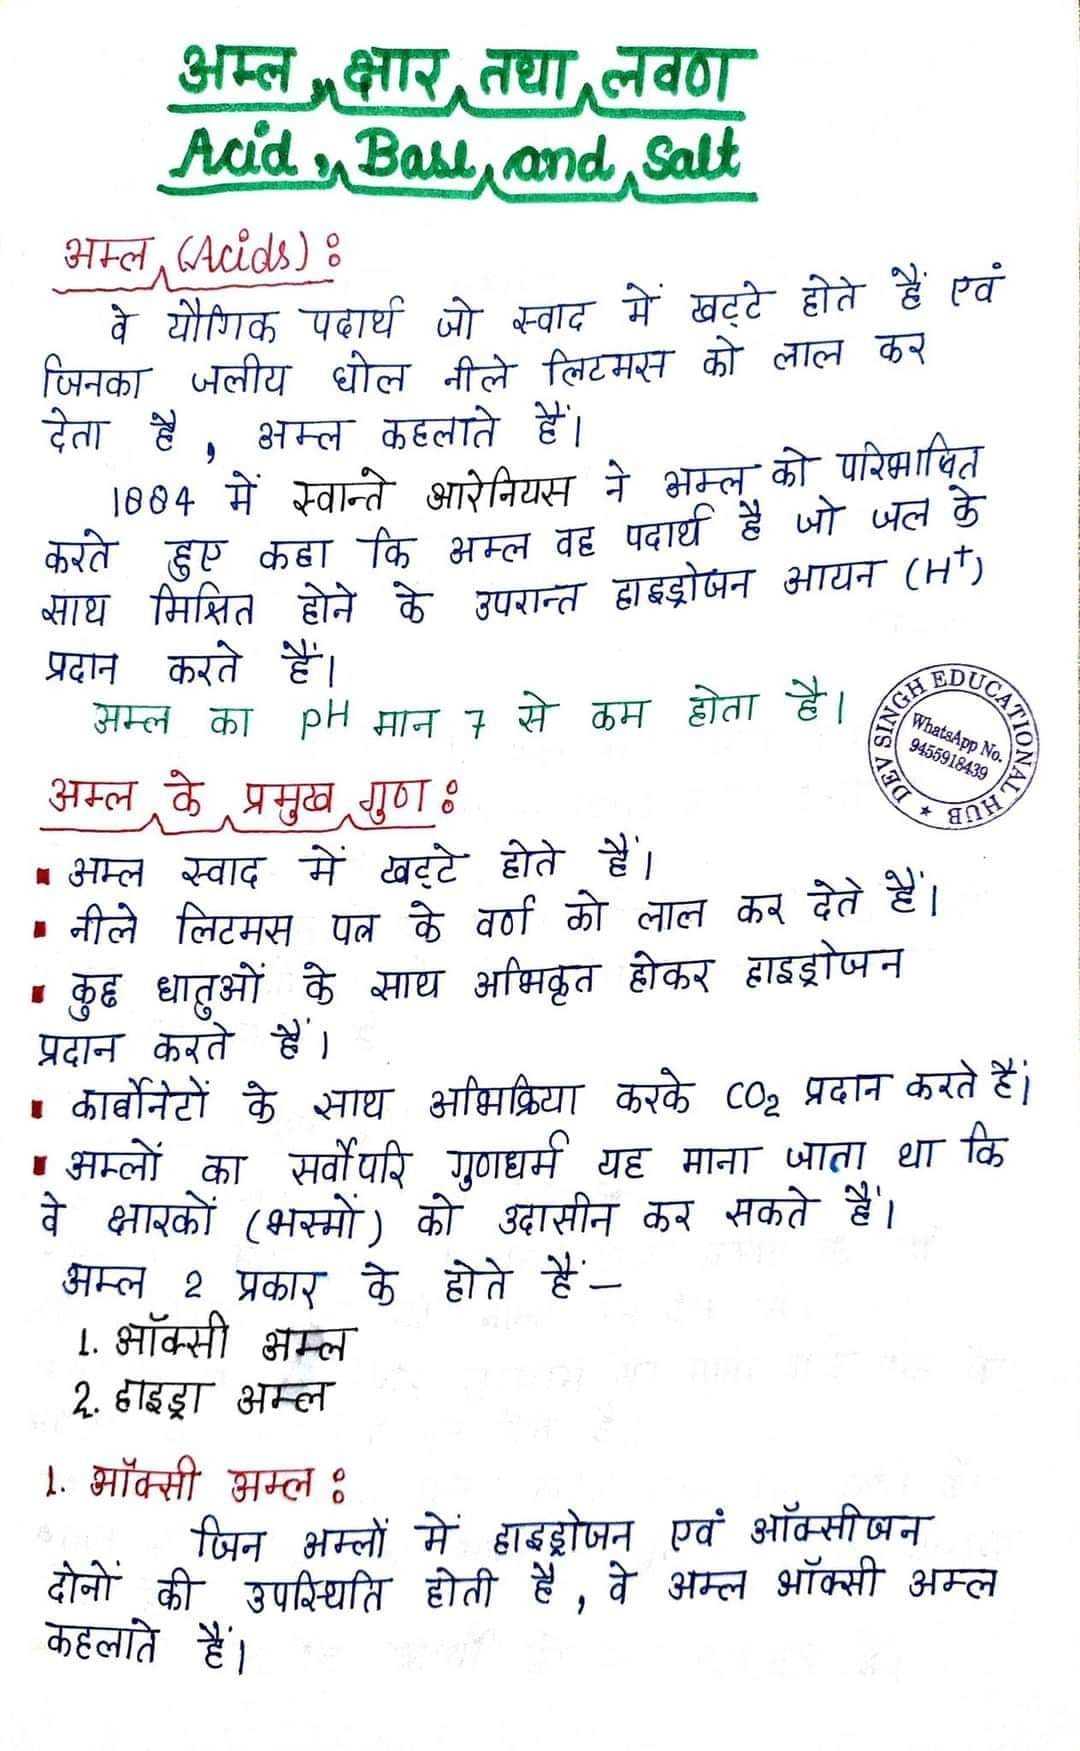 अम्ल, क्षार तथा लवण
Acid, Base and Salt
अम्ल (Acids) :
वे यौगिक पदार्थ जो स्वाद में खट्टे होते हैं एवं
जिनका जलीय घोल नीले लिटमस को लाल कर
देता है, अम्ल कहलाते हैं।
1884 में स्वान्ते आरेनियस ने अम्ल को परिभाषित
करते हुए कहा कि अम्ल वह पदार्थ है जो जल के
साथ मिश्रित होने के उपरान्त हाइड्रोजन आयन (H⁺)
प्रदान करते हैं।
अम्ल का pH मान 7 से कम होता है।
DEV SINGH EDUCATIONAL HUB
WhatsApp No.
9455918439
अम्ल के प्रमुख गुण :
▪ अम्ल स्वाद में खट्टे होते हैं।
▪ नीले लिटमस पत्र के वर्ण को लाल कर देते हैं।
▪ कुछ धातुओं के साथ अभिकृत होकर हाइड्रोजन
प्रदान करते हैं।
▪ कार्बोनेटों के साथ अभिक्रिया करके CO₂ प्रदान करते हैं।
▪ अम्लों का सर्वोपरि गुणधर्म यह माना जाता था कि
वे क्षारकों (भस्मों) को उदासीन कर सकते हैं।
अम्ल 2 प्रकार के होते हैं –
1. ऑक्सी अम्ल
2. हाइड्रा अम्ल
1. ऑक्सी अम्ल :
जिन अम्लों में हाइड्रोजन एवं ऑक्सीजन
दोनों की उपस्थिति होती है, वे अम्ल ऑक्सी अम्ल
कहलाते हैं।